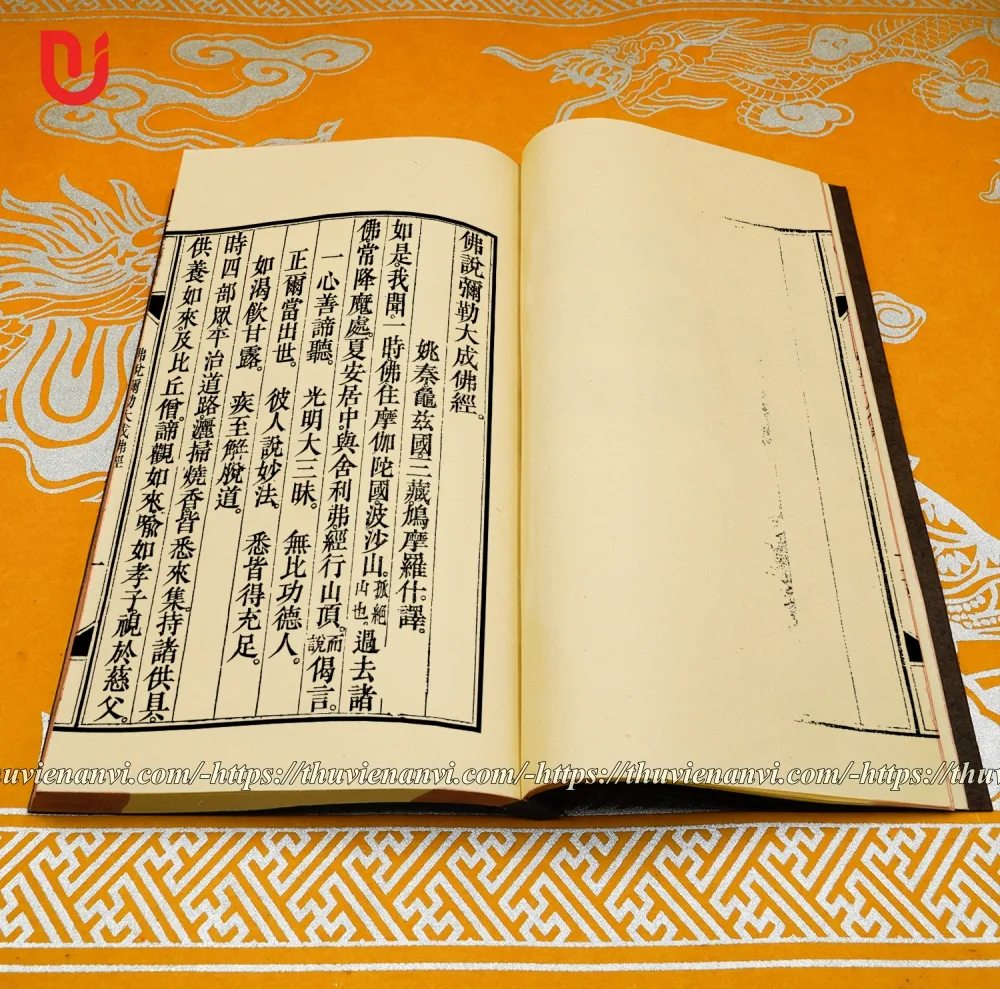 佛說彌勒大成佛經。
姚秦龜茲國三藏鳩摩羅什。譯。
如是我聞。一時佛住摩伽陀國。波沙山。孤絕山也。過去諸
佛常降魔處。夏安居中。與舍利弗。經行山頂。而說偈言。
一心善諦聽。 光明大三昧。 無比功德人。
正爾當出世。 彼人說妙法。 悉皆得充足。
如渴飲甘露。 疾至解脫道。
時四部眾。平治道路。灑掃燒香。皆悉來集。持諸供具。
供養如來。及比丘僧。諦觀如來。喻如孝子。視於慈父。
佛說彌勒大成佛經 一
huvienanvi.com/-https://thuvienanvi.com/-https://thuvienanvi.com/-https://thuv